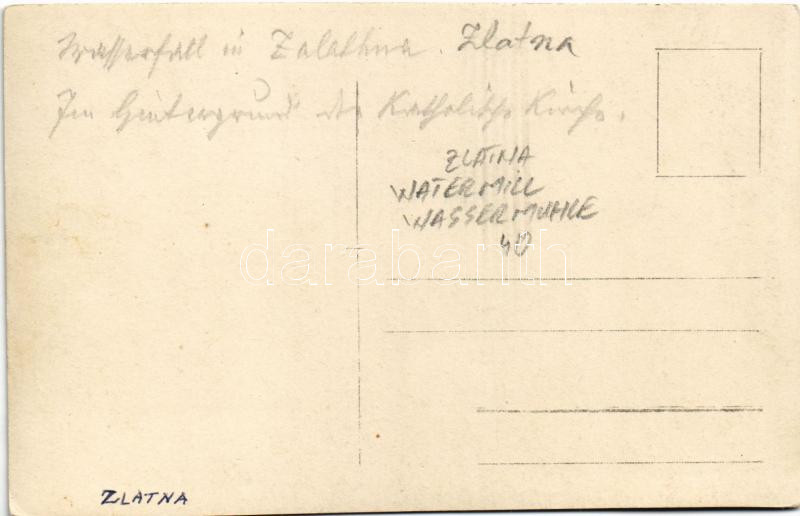 Wasserfall in Zalathna. Zlatna
Im Hintergrund die Katholische Kirche.
ZLATNA
WATERMILL
WASSERMUHLE
40
darabanth
ZLATNA